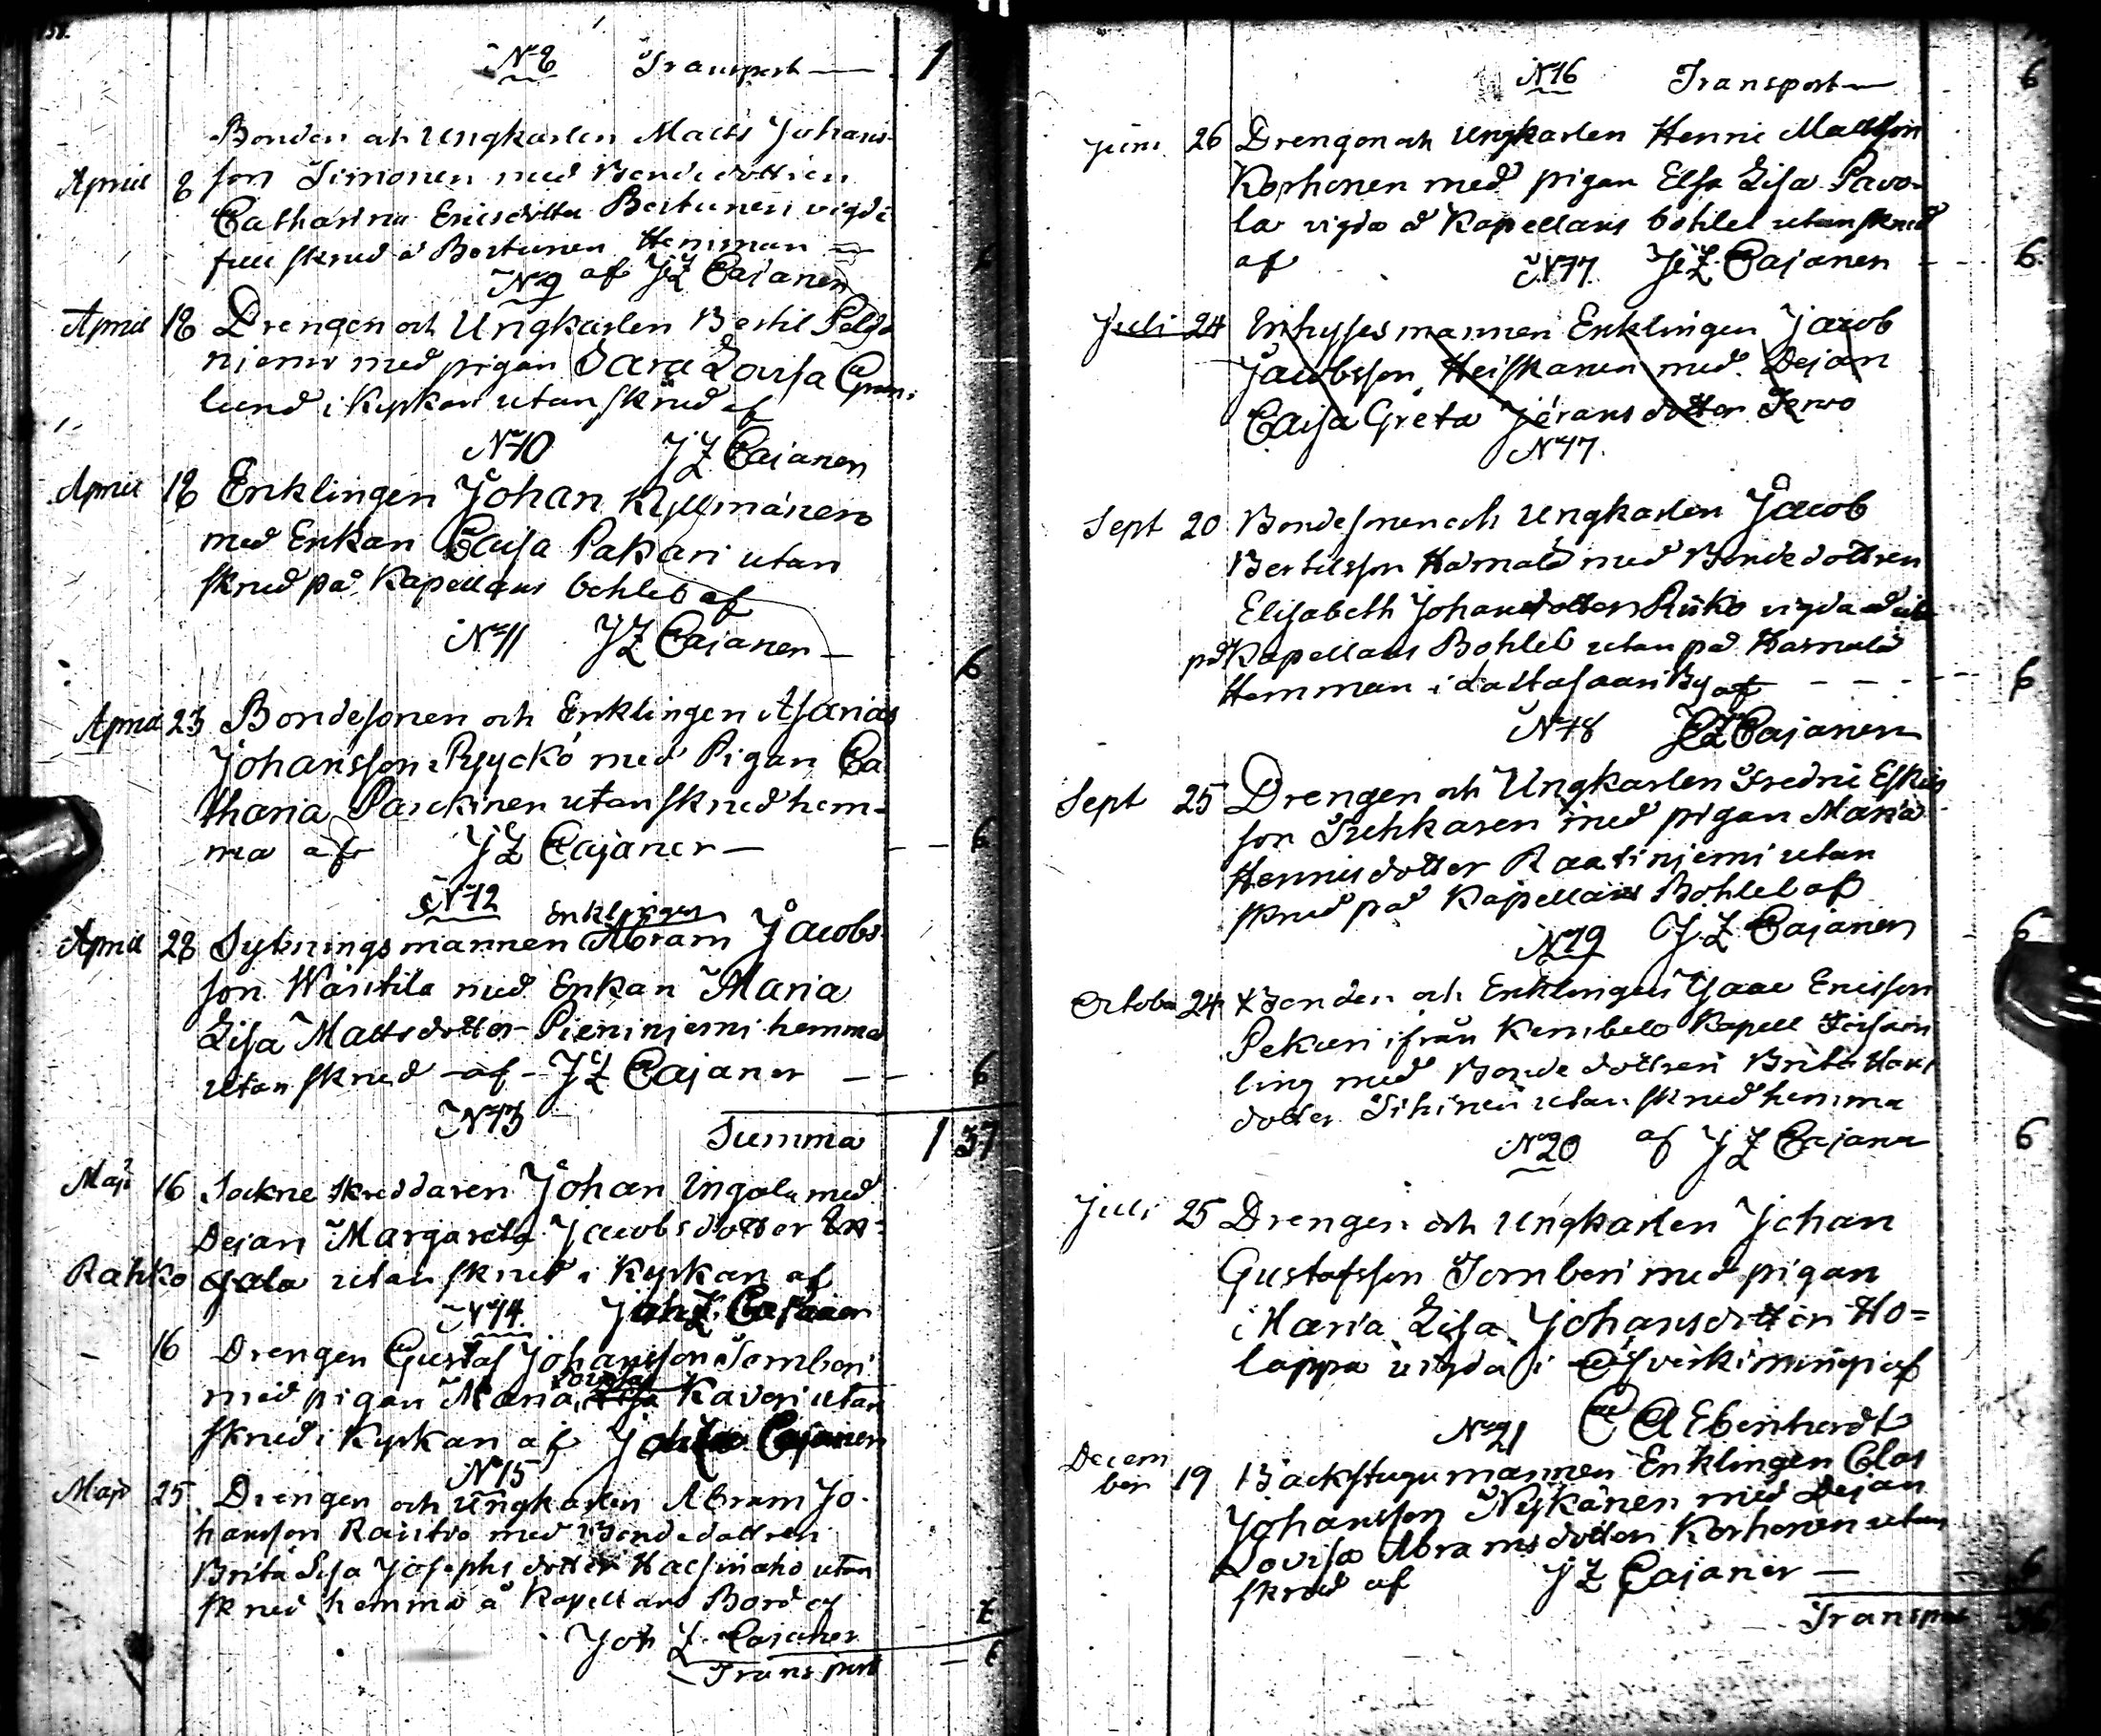 N 8 Transport — 1
Bonden och Ungkarlen Matts Johans-
April 8 son Simonen med Bondedottren
Catharina Ericsdotter Bertunen vigde
full skrud å Bertunen Hemman —
N 9 af JZ Cajanen
April 18 Drengen och Ungkarlen Bertil Peldo
niemi med pigan Sara Lovisa Gran-
lund i Kyrkan utan skrud af
N 10 JZ Cajanen
April 18 Enklingen Johan Kyllmänen
med Enkan Caisa Pakari utan
skrud på Kapellans bohleb af
N 11 JZ Cajanen — 6
April 23 Bondesonen och Enklingen Asarias
Johansson Pyyckö med Pigan Ca
tharia Parckinen utan skrud hem-
ma af JZ Cajaner — 6
N 12
Enklingen
April 28 Sytningsmannen Abram Jacobs-
son Wäntila med Enkan Maria
Lisa Mattsdotter Pieniniemi hemma
utan skrud af JZ Cajaner — 6
N 13 Summa 1 37
Maji 16 Sockne skreddaren Johan Ingala med
Dejan Margareta Jacobsdotter In-
Rahko gala utan skrud i Kyrkan af
N 14. Joh Z. Cajaner
— 16 Drengen Gustaf Johansson Tornberi
Lovisa
med pigan Maria Lisa Kaveri utan
skrud i Kyrkan af Joh Z Cajanen
N 15
Maji 25 Drengen och Ungkarlen Abram Jo-
hansson Rautio med Bondedottren
Brita Lisa Josephsdotter Halsinaho utan
skrud hemma å Kapellans Bord af
Joh Z. Cajaner
Transport — 6
N 16 Transport — 6
Juni 26 Drengen och Ungkarlen Henric Mattsson
Korhonen med pigan Elsa Lisa Pavo-
la vigda å Kapellans bohleb utan skrud
af N 17. JZ Cajanen - - 6
Juli 24 Inhysesmannen Enklingen Jacob
Jacobsson Heiskanen med Dejan
Caisa Greta Jöransdotter Tervo
N 17.
Sept 20 Bondesonen och Ungkarlen Jacob
Bertilsson Hamala med Bondedottren
Elisabeth Johansdotter Risko vigda
på Kapellans Bohleb utan på Hamala
Hemman i By af - - - - 6
N 18 JZ Cajanen
Sept 25 Drengen och Ungkarlen Fredric Eskils
son Tuhkasen med pigan Maria
Henricsdotter Raatiniemi utan
skrud på Kapellans Bohleb af
N 19 J.Z Cajanen - 6
October 24 Bonden och Enklingen Isaac Ericsson
Pekuri ifrån Kembele Kapell
ling med Bondedottren Brita Hans
dotter Tihinen utan skrud hemma
N 20 af JZ Cajaner 6
Juli 25 Drengen och Ungkarlen Johan
Gustafsson Tornberi med pigan
Maria Lisa Johansdotter Ho=
lappa vigda i af
C A Ebenhardt
N 21
Decem
ber 19 Backstugumannen Enklingen Clas
Johansson Nyskänen med Dejan
Lovisa Abramsdotter Korhonen utan
skrud af JZ Cajaner — 6
Transport 36